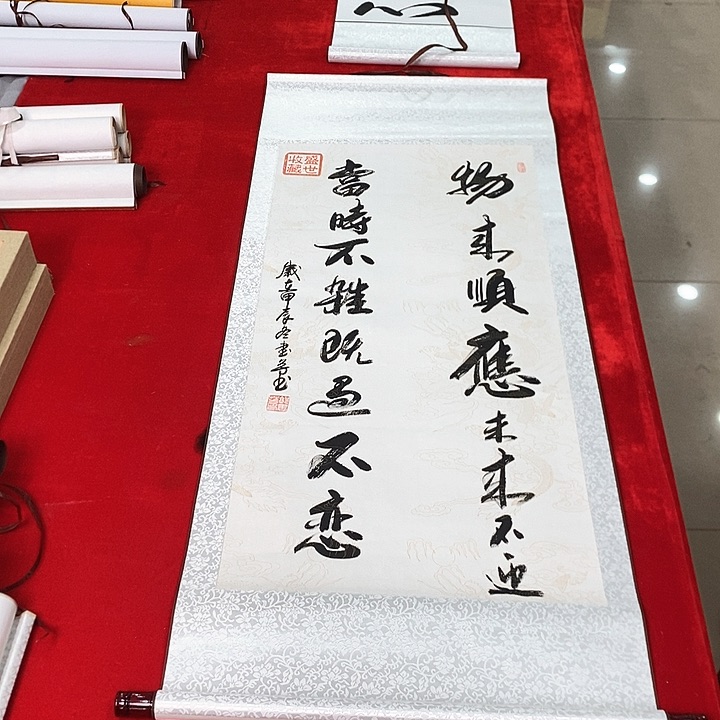 物来順應未来不迎
當時不雜既過不恋
歲在甲辰冬書
盛世收藏